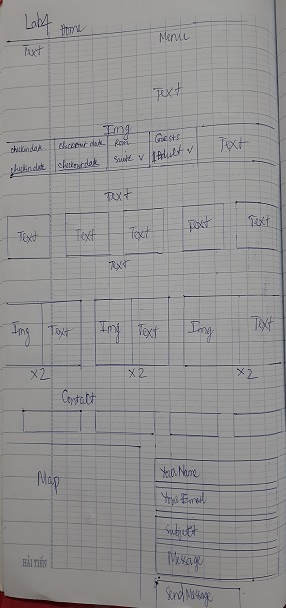 Lab4 Home
Text Menu
Text
Img
checkin date checkout date Room Guests
checkin date checkout date Suite v 1 Adult v Text
Text
Text Text Text Text Text
Text
Img Text Img Text Img Text
x2 x2 x2
Contact
Map
Your Name
Your Email
Subject
Message
Send Message
HẢI TIẾN